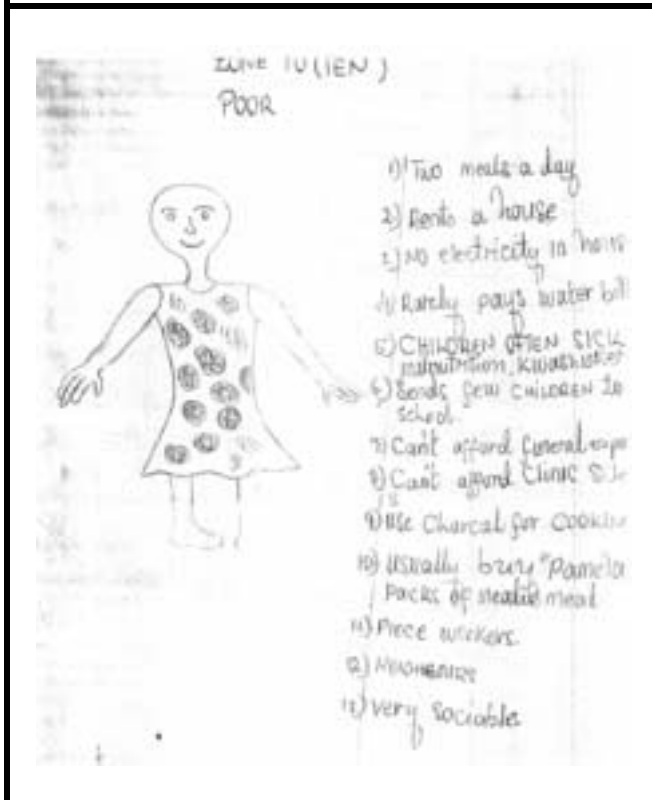 ZONE IV (IEN)
POOR
1) Two meals a day
2) Rents a house
3) No electricity in
4) Rarely pays water
5) CHILDREN OFTEN SICK
malnutrition,
6) Sends few CHILDREN to
school
7) Can't afford funeral
8) Can't afford Clinic
9) Use Charcal for
10) Usually buy "Pamela
Packs of mealie meal
11) Piece workers.
12)
13) Very Sociable